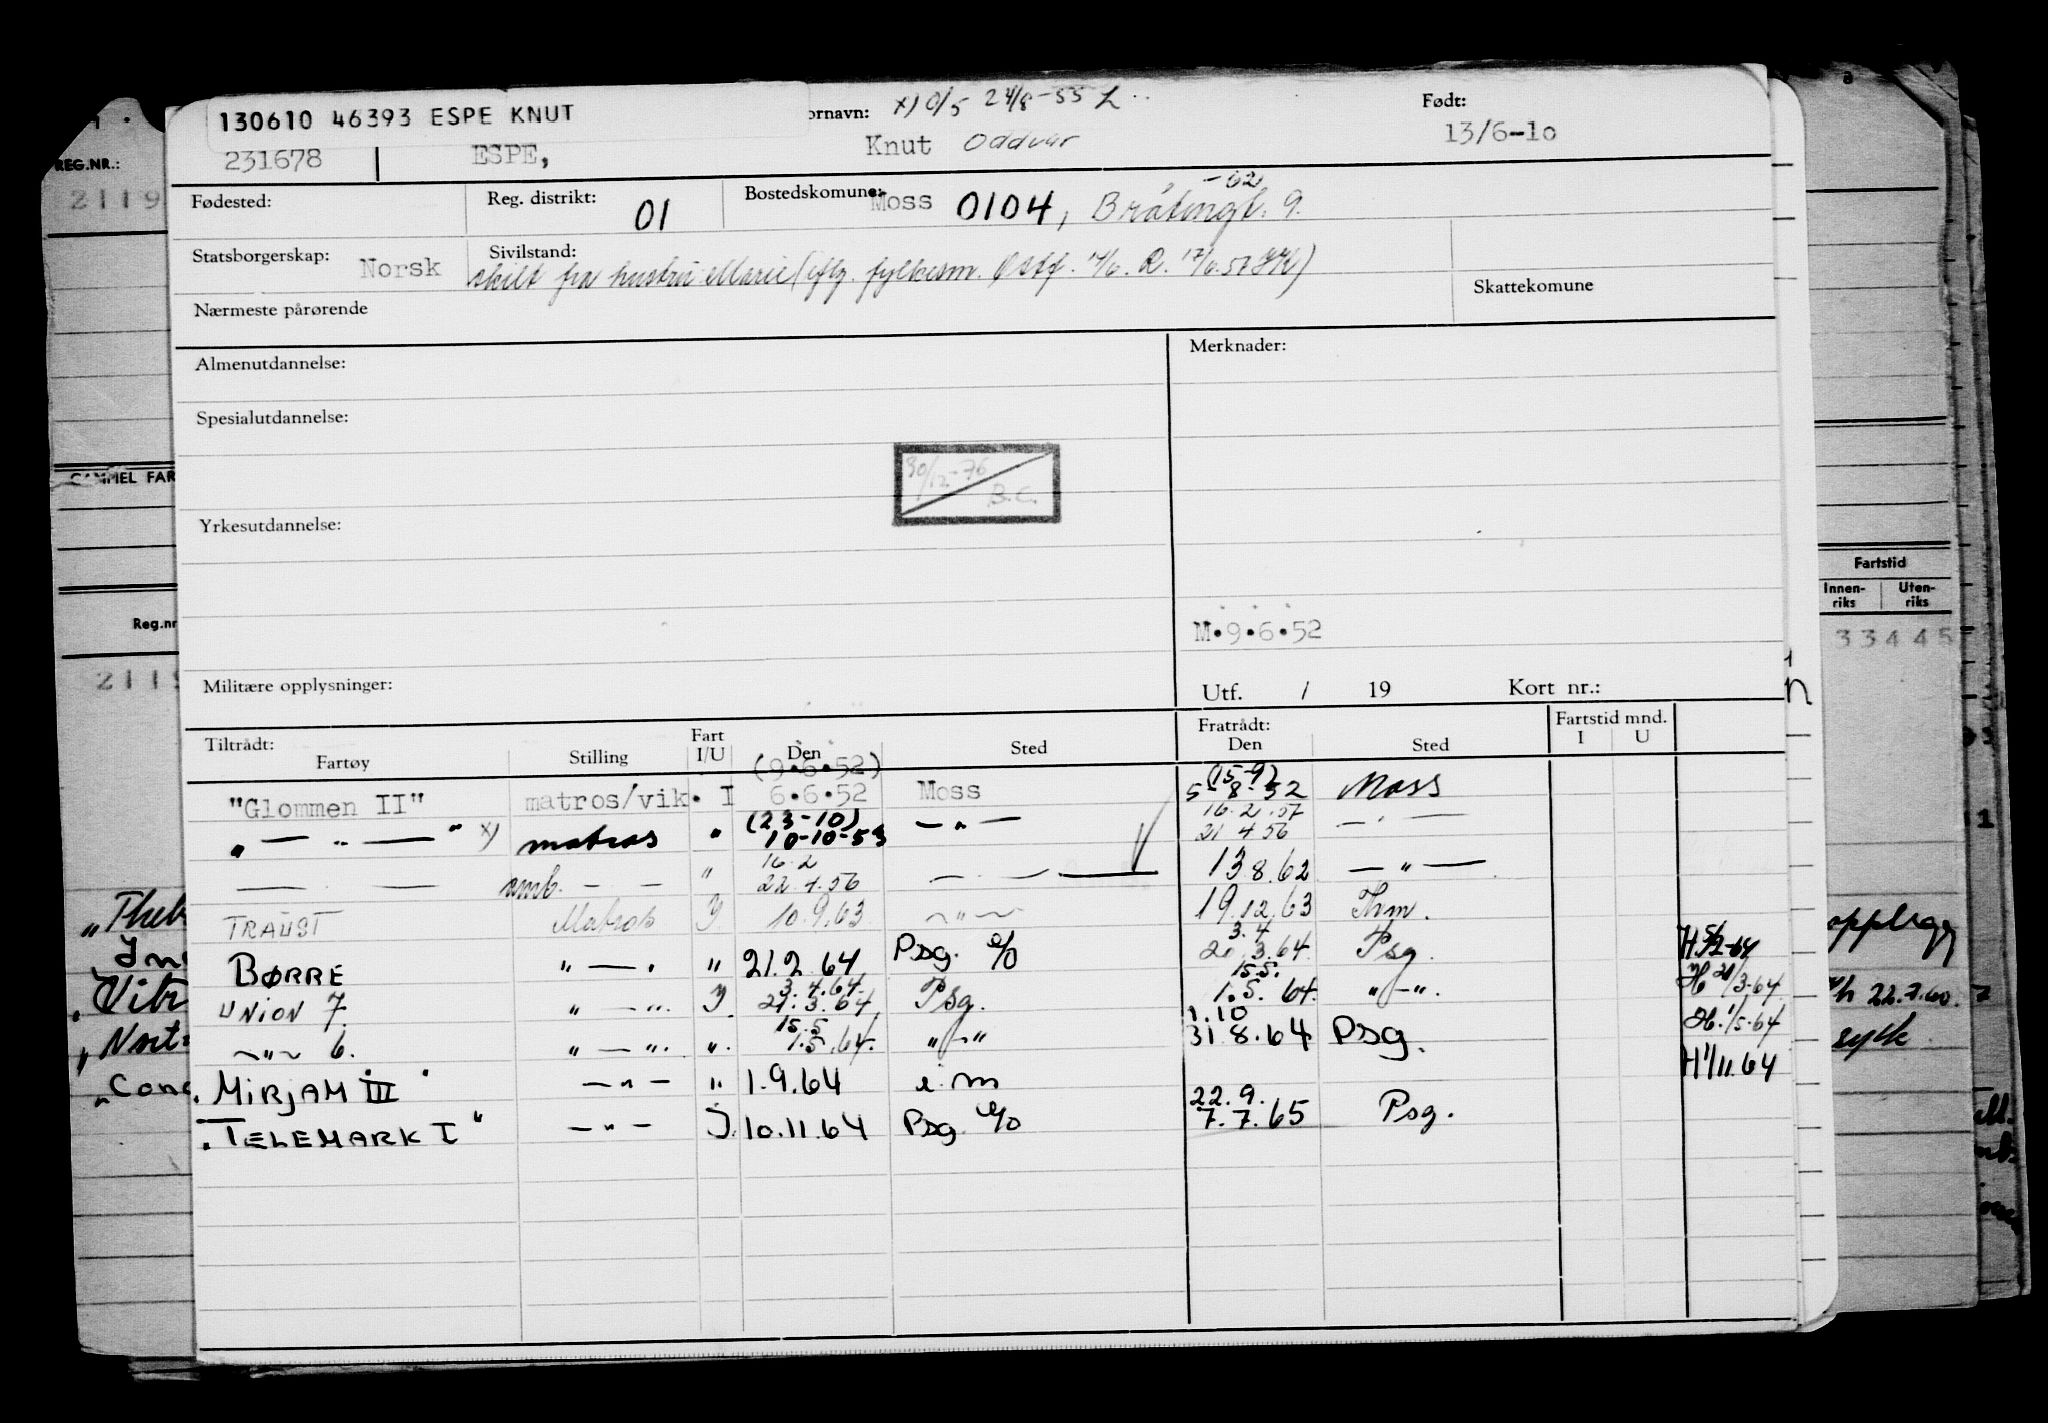 130610 46393 ESPE KNUT
ornavn: x) 0/5 24/8-55 L
Født:
231678 ESPE, Knut Oddvar 13/6-1o
Fødested:
Reg. distrikt: 01
Bostedskomune: Moss 0104, Bråtengt. 9. -62
Statsborgerskap: Norsk
Sivilstand: skilt fra hustru Marie (iflg. fylkesm. Østf. 14/6. R. 17/6.57 HK)
Nærmeste pårørende
Skattekomune
Almenutdannelse:
Merknader:
Spesialutdannelse:
30/12-76
B.C.
Yrkesutdannelse:
M.9.6.52
Militære opplysninger:
Utf. / 19 Kort nr.:
Tiltrådt: Fart Fratrådt: Fartstid mnd.
Fartøy Stilling I/U Den Sted Den Sted I U
(9.6.52) (15-9)
"Glommen II" matros/vik. I 6.6.52 Moss 5-8-52 Moss
(23-10) 16.2.57
" — " — " x) matros " 10-10-53 — " — 21 4 56 — " —
16.2
— — omb. — — " 22.4.56 — — 13.8.62 — " —
TRAUST Matros I 10.9.63 — " — 19.12.63 Thm.
3.4
BØRRE " — " " 21.2.64 Psg. o/o 20.3.64 Psg. H 5/2-64
3.4.64 15.5.
UNION 7. " — " I 21.3.64 Psg. 1.5.64. " — " H 21/3-64
15.5 1.10
— " — 6. " — " " 1.5.64. " — " 31.8.64 Psg. H. 1/5-64
"MIRJAM III" — " — " 1.9.64 i m H 1/11.64
22.9.
"TELEMARK I" — " — I. 10.11.64 Psg. o/o 7.7.65 Psg.
REG.NR.:
2119
GAMMEL FAR
Reg.nr
2119
"Theb
"Vitr
"Cona
Fartstid
Innen-
riks
Uten-
riks
33445
opplegg
22.7.60.
syk